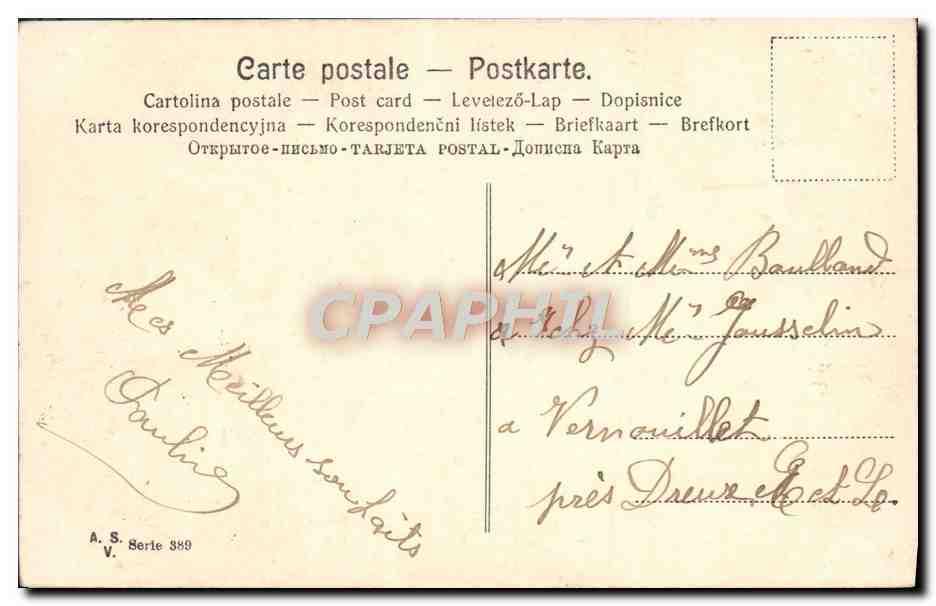 Carte postale — Postkarte.
Cartolina postale — Post card — Levelező-Lap — Dopisnice
Karta korespondencyjna — Korespondenčni lístek — Briefkaart — Brefkort
Открытое-письмо-TARJETA POSTAL-Дописна Карта
CPAPHIL
Mes Meilleurs souhaits
Pauline
Mr et Mme Baulland
chez Mr Jousselin
a Vernouillet
près Dreux E et L.
A. S.
V. Serie 389